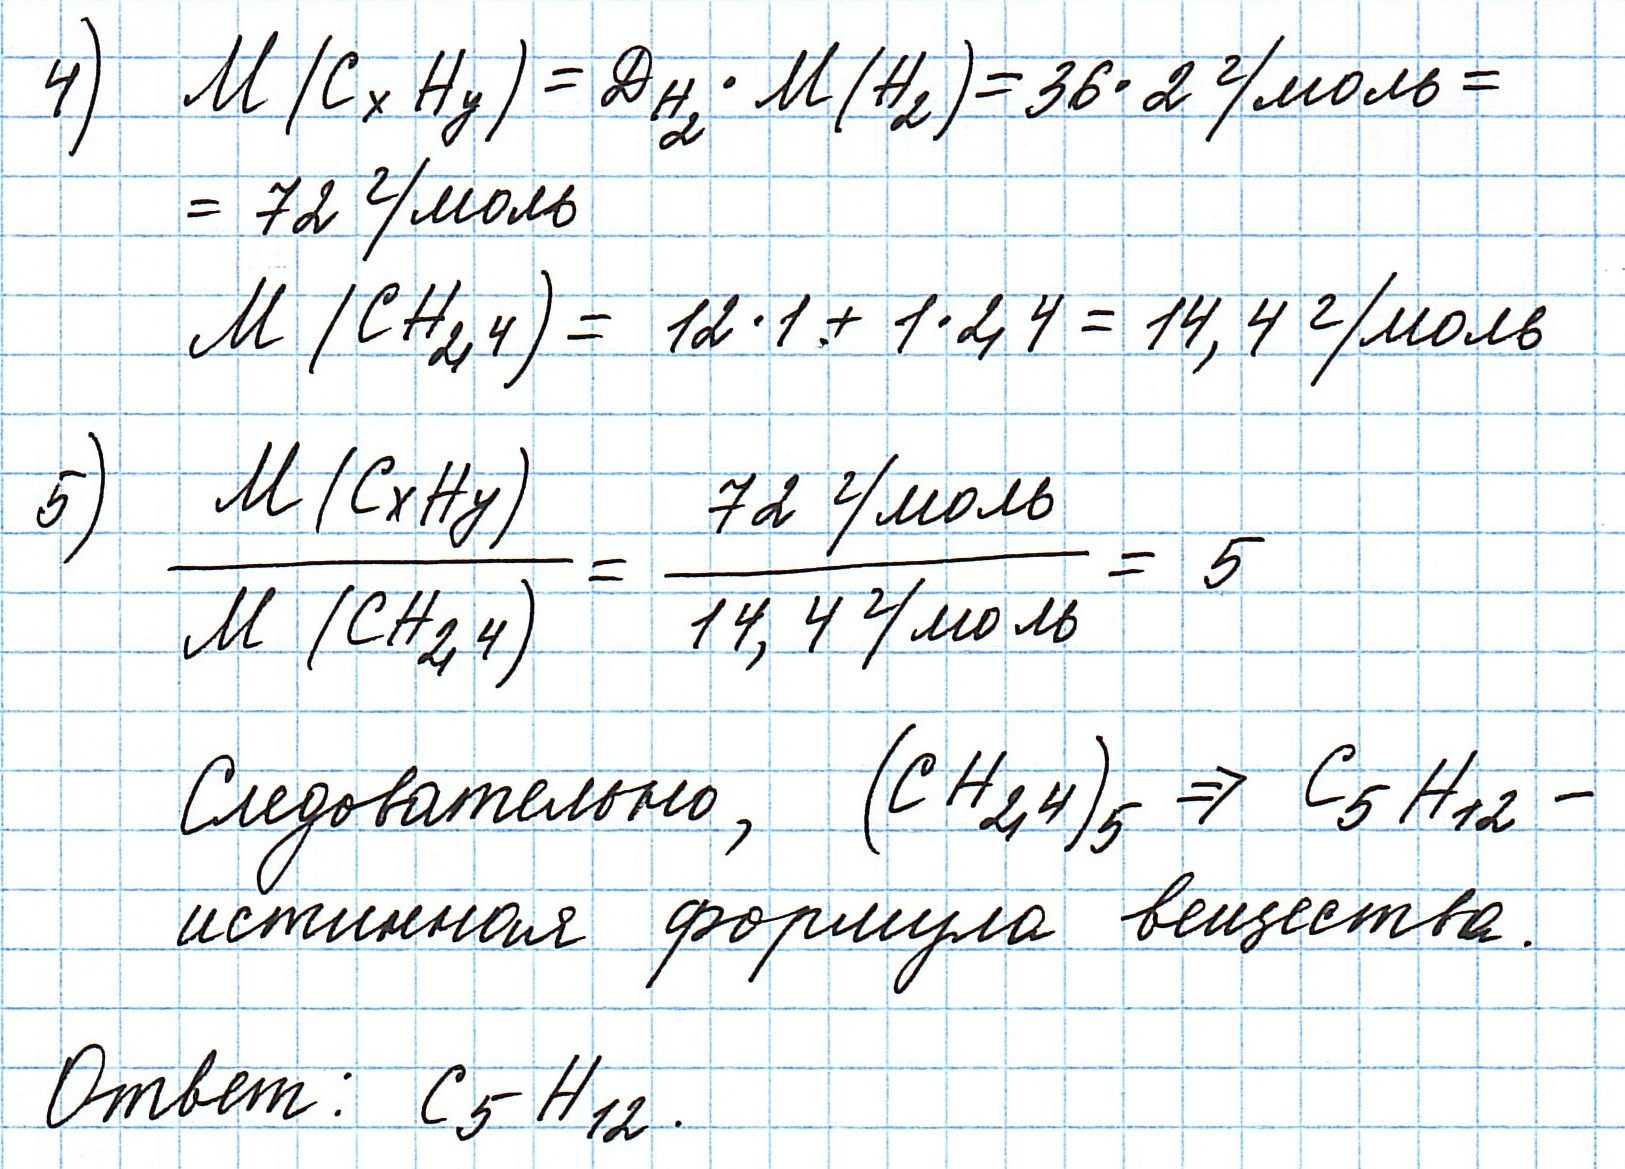 4) M(CₓHᵧ) = Д_H₂ · M(H₂) = 36 · 2 г/моль =
= 72 г/моль
M(CH₂,₄) = 12·1 + 1·2,4 = 14,4 г/моль
5) M(CₓHᵧ) / M(CH₂,₄) = 72 г/моль / 14,4 г/моль = 5
Следовательно, (CH₂,₄)₅ ⇒ C₅H₁₂ –
истинная формула вещества.
Ответ: C₅H₁₂.